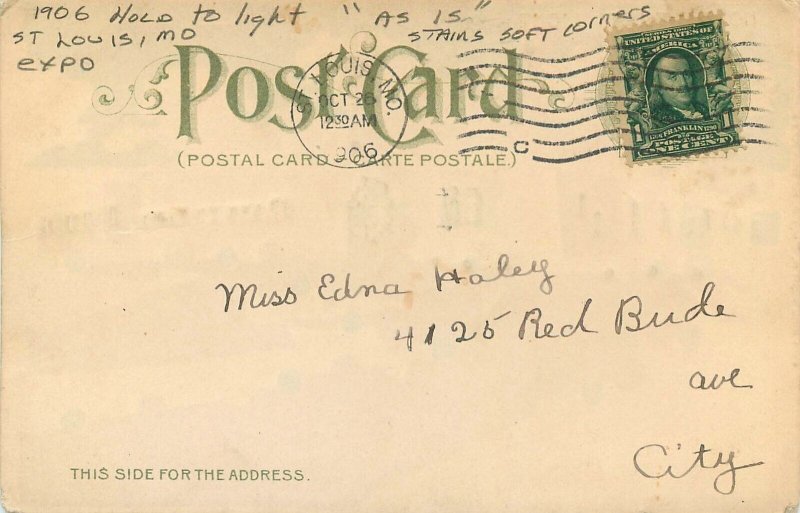 1906 HOLD to light "AS IS"
ST LOUIS, MO STAINS SOFT CORNERS
EXPO
Post Card
(POSTAL CARD - CARTE POSTALE.)
ST. LOUIS, MO.
OCT 26
12 30 AM
1906
C
UNITED STATES OF
AMERICA
1 FRANKLIN 1
POSTAGE
ONE CENT
Miss Edna Haley
4125 Red Bude
ave
City
THIS SIDE FOR THE ADDRESS.